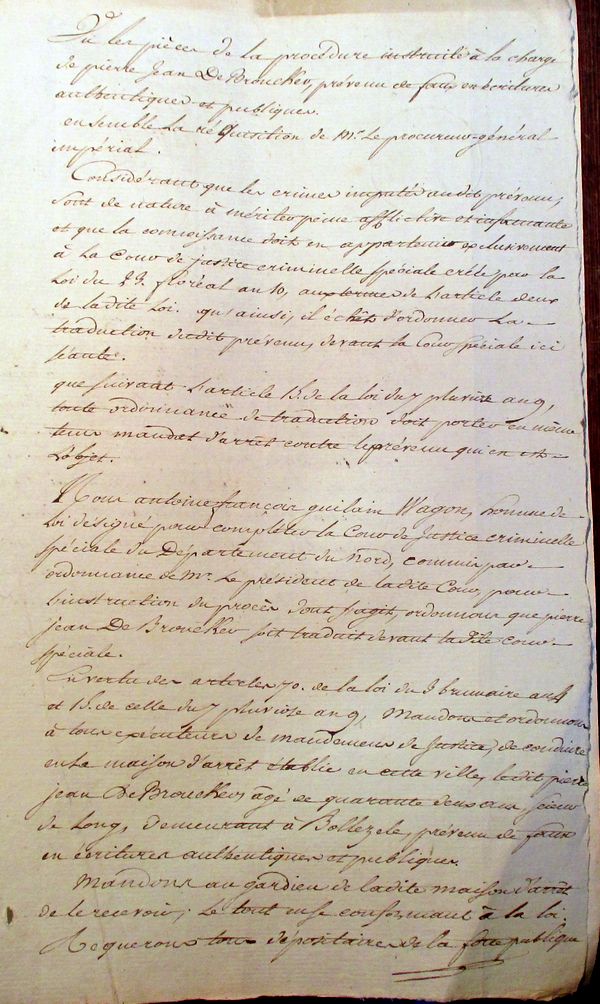 Vu les pièces de la procédure instruite à la charge
de pierre Jean De Broucker, prévenu de faux en écritures
authentiques et publiques.
ensemble la réquisition de Mr. Le procureur-général
impérial.
Considérant que les crimes imputés audit prévenu,
sont de nature à mériter peine afflictive et infamante
et que la connoissance doit en appartenir exclusivement
à La Cour de justice criminelle spéciale créée par la
Loi du 23. floréal an 10, aux termes de l'article deux
de ladite Loi. qu'ainsi, il échet d'ordonner La
traduction dudit prévenu, devant la Cour spéciale ici
séante.
que suivant L'article 15. de la loi du 7 pluviose an 9,
toute ordonnance de traduction doit porter en même
tems mandat d'arrêt contre le prévenu qui en est
L'objet.
Nous antoine françois guilain Wagon, homme de
Loi désigné pour completter la Cour de Justice criminelle
spéciale du Département du Nord, commis par
ordonnance de Mr. Le président de ladite Cour, pour
l'instruction du procès dont s'agit, ordonnons que pierre
jean De Broucker soit traduit devant ladite cour
spéciale.
En vertu des articles 70. de la loi du 3 brumaire an 4
et 15. de celle du 7 pluviose an 9, Mandons et ordonnons
à tous exécuteurs de mandemens de Justice, de conduire
en La maison d'arrêt établie en cette ville, ledit pierre
jean De Broucker, âgé de quarante deux ans, scieur
de Long, demeurant à Bollezele, prévenu de faux
en écritures authentiques et publiques.
Mandons au gardien de ladite maison d'arrêt
de le recevoir; Le tout en se conformant à la loi.
Requerons tous dépositaires de la force publique